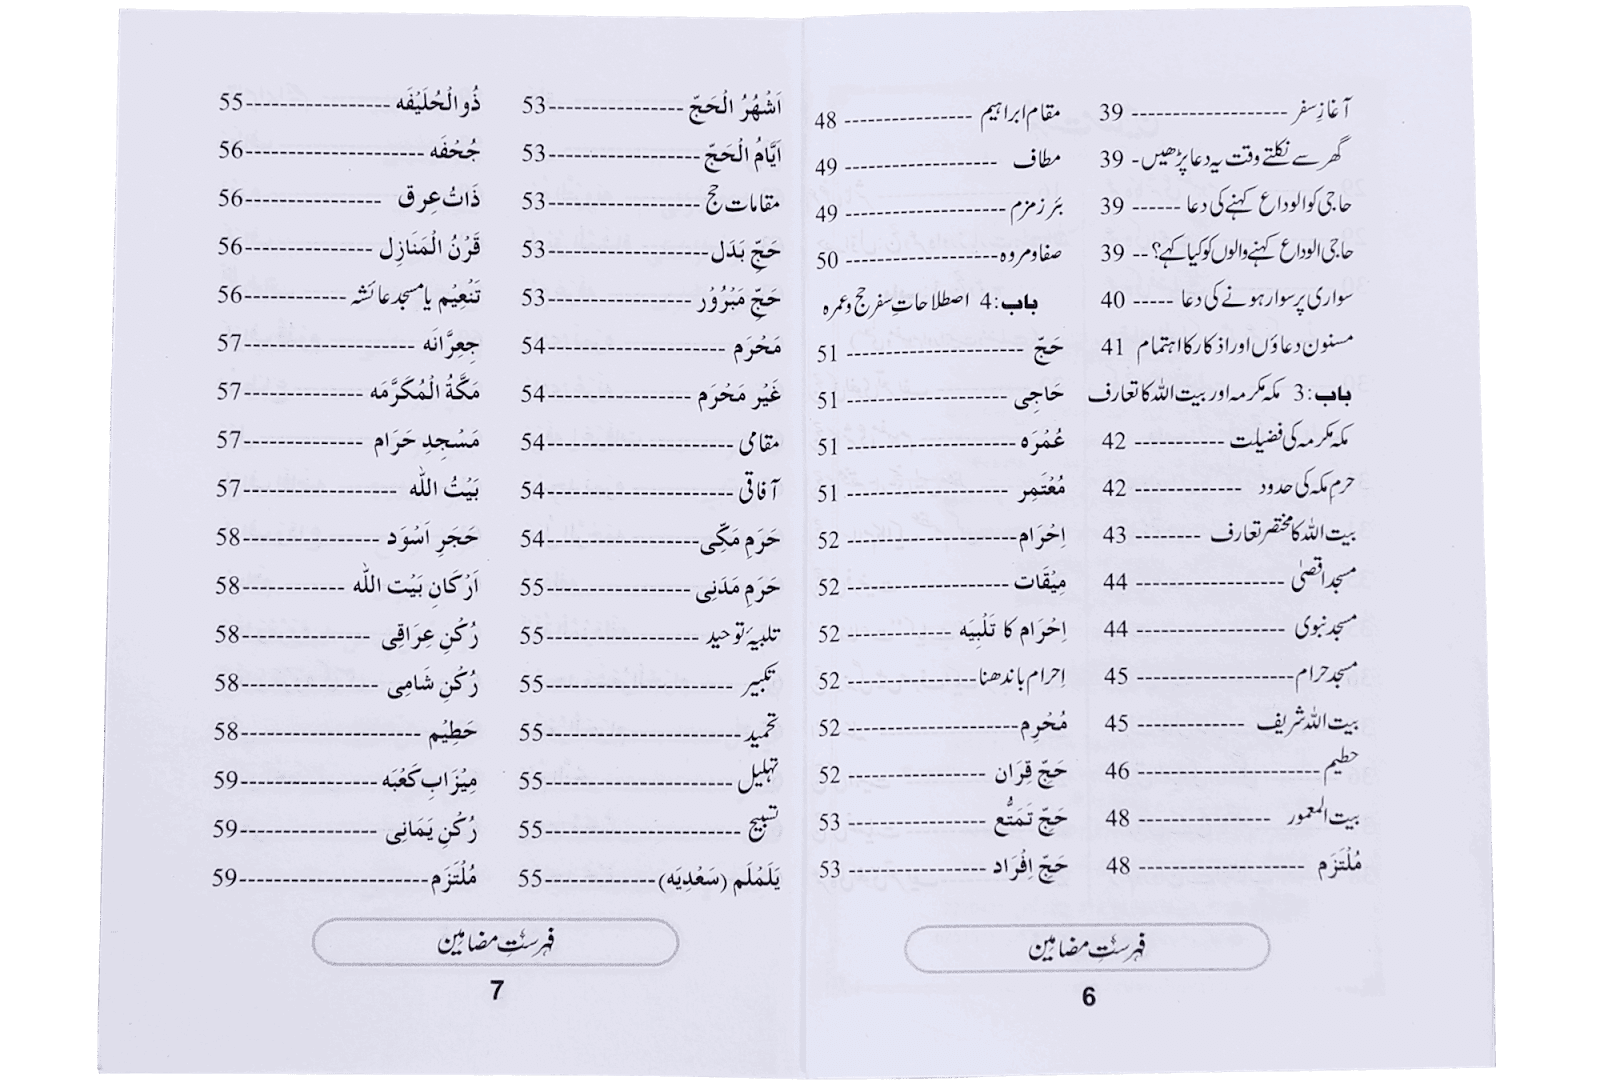 آغازِ سفر ---------------- 39
گھر سے نکلتے وقت یہ دعا پڑھیں- 39
حاجی کو الوداع کہنے کی دعا ------ 39
حاجی الوداع کہنے والوں کو کیا کہے؟-- 39
سواری پر سوار ہونے کی دعا ----- 40
مسنون دعاؤں اور اذکار کا اہتمام 41
باب:3 مکہ مکرمہ اور بیت اللہ کا تعارف
مکہ مکرمہ کی فضیلت ----------- 42
حرم مکہ کی حدود ------------- 42
بیت اللہ کا مختصر تعارف -------- 43
مسجد اقصیٰ ---------------- 44
مسجد نبوی ---------------- 44
مسجد حرام----------------- 45
بیت اللہ شریف ------------- 45
حطیم -------------------- 46
بیت المعمور --------------- 48
مُلْتَزَم ------------------ 48
مقام ابراہیم -------------- 48
مطاف ----------------- 49
بَر زمزم ------------------ 49
صفا و مروہ----------------- 50
باب:4 اصطلاحاتِ سفر حج و عمرہ
حَجّ ------------------- 51
حَاجِی ------------------ 51
عُمْرَه ------------------- 51
مُعْتَمِر ----------------- 51
اِحْرَام------------------ 52
مِیْقَات ----------------- 52
اِحْرَام کا تَلْبِیَه ----------- 52
اِحرام باندھنا-------------- 52
مُحْرِم------------------- 52
حَجِّ قِرَان --------------- 52
حَجِّ تَمَتُّع --------------- 53
حَجِّ اِفْرَاد --------------- 53
فہرستِ مضامین
6
اَشْهُرُ الْحَجّ ---------------53
اَیَّامُ الْحَجّ -----------------53
مقامات حج -----------------53
حَجِّ بَدَل------------------53
حَجِّ مَبْرُوْر----------------53
مَحْرَم -------------------54
غَیْر مَحْرَم ----------------54
مقامی --------------------54
آفاقی--------------------54
حَرَمِ مَکِّی-----------------54
حَرَمِ مَدَنِی ----------------55
تلبیۂ توحید -----------------55
تکبیر --------------------55
تحمید---------------------55
تہلیل --------------------55
تسبیح ---------------------55
یَلَمْلَم (سَعْدِیَه)-------------55
ذُو الْحُلَیْفَه ----------------55
جُحْفَه -------------------56
ذَاتُ عِرق ---------------56
قَرْنُ الْمَنَازِل --------------56
تَنْعِیْم یا مسجد عائشہ -----------56
جِعِرَّانَه ------------------57
مَکَّةُ الْمُکَرَّمَه ---------------57
مَسْجِدِ حَرَام -------------57
بَیْتُ اللّٰه -----------------57
حَجَرِ اَسْوَد --------------58
اَرْکَانِ بَیْت اللّٰه -----------58
رُکْنِ عِرَاقِی --------------58
رُکْنِ شَامِی ---------------58
حَطِیْم -------------------58
مِیْزَابِ کَعْبَه---------------59
رُکْنِ یَمَانِی ---------------59
مُلْتَزَم--------------------59
فہرستِ مضامین
7